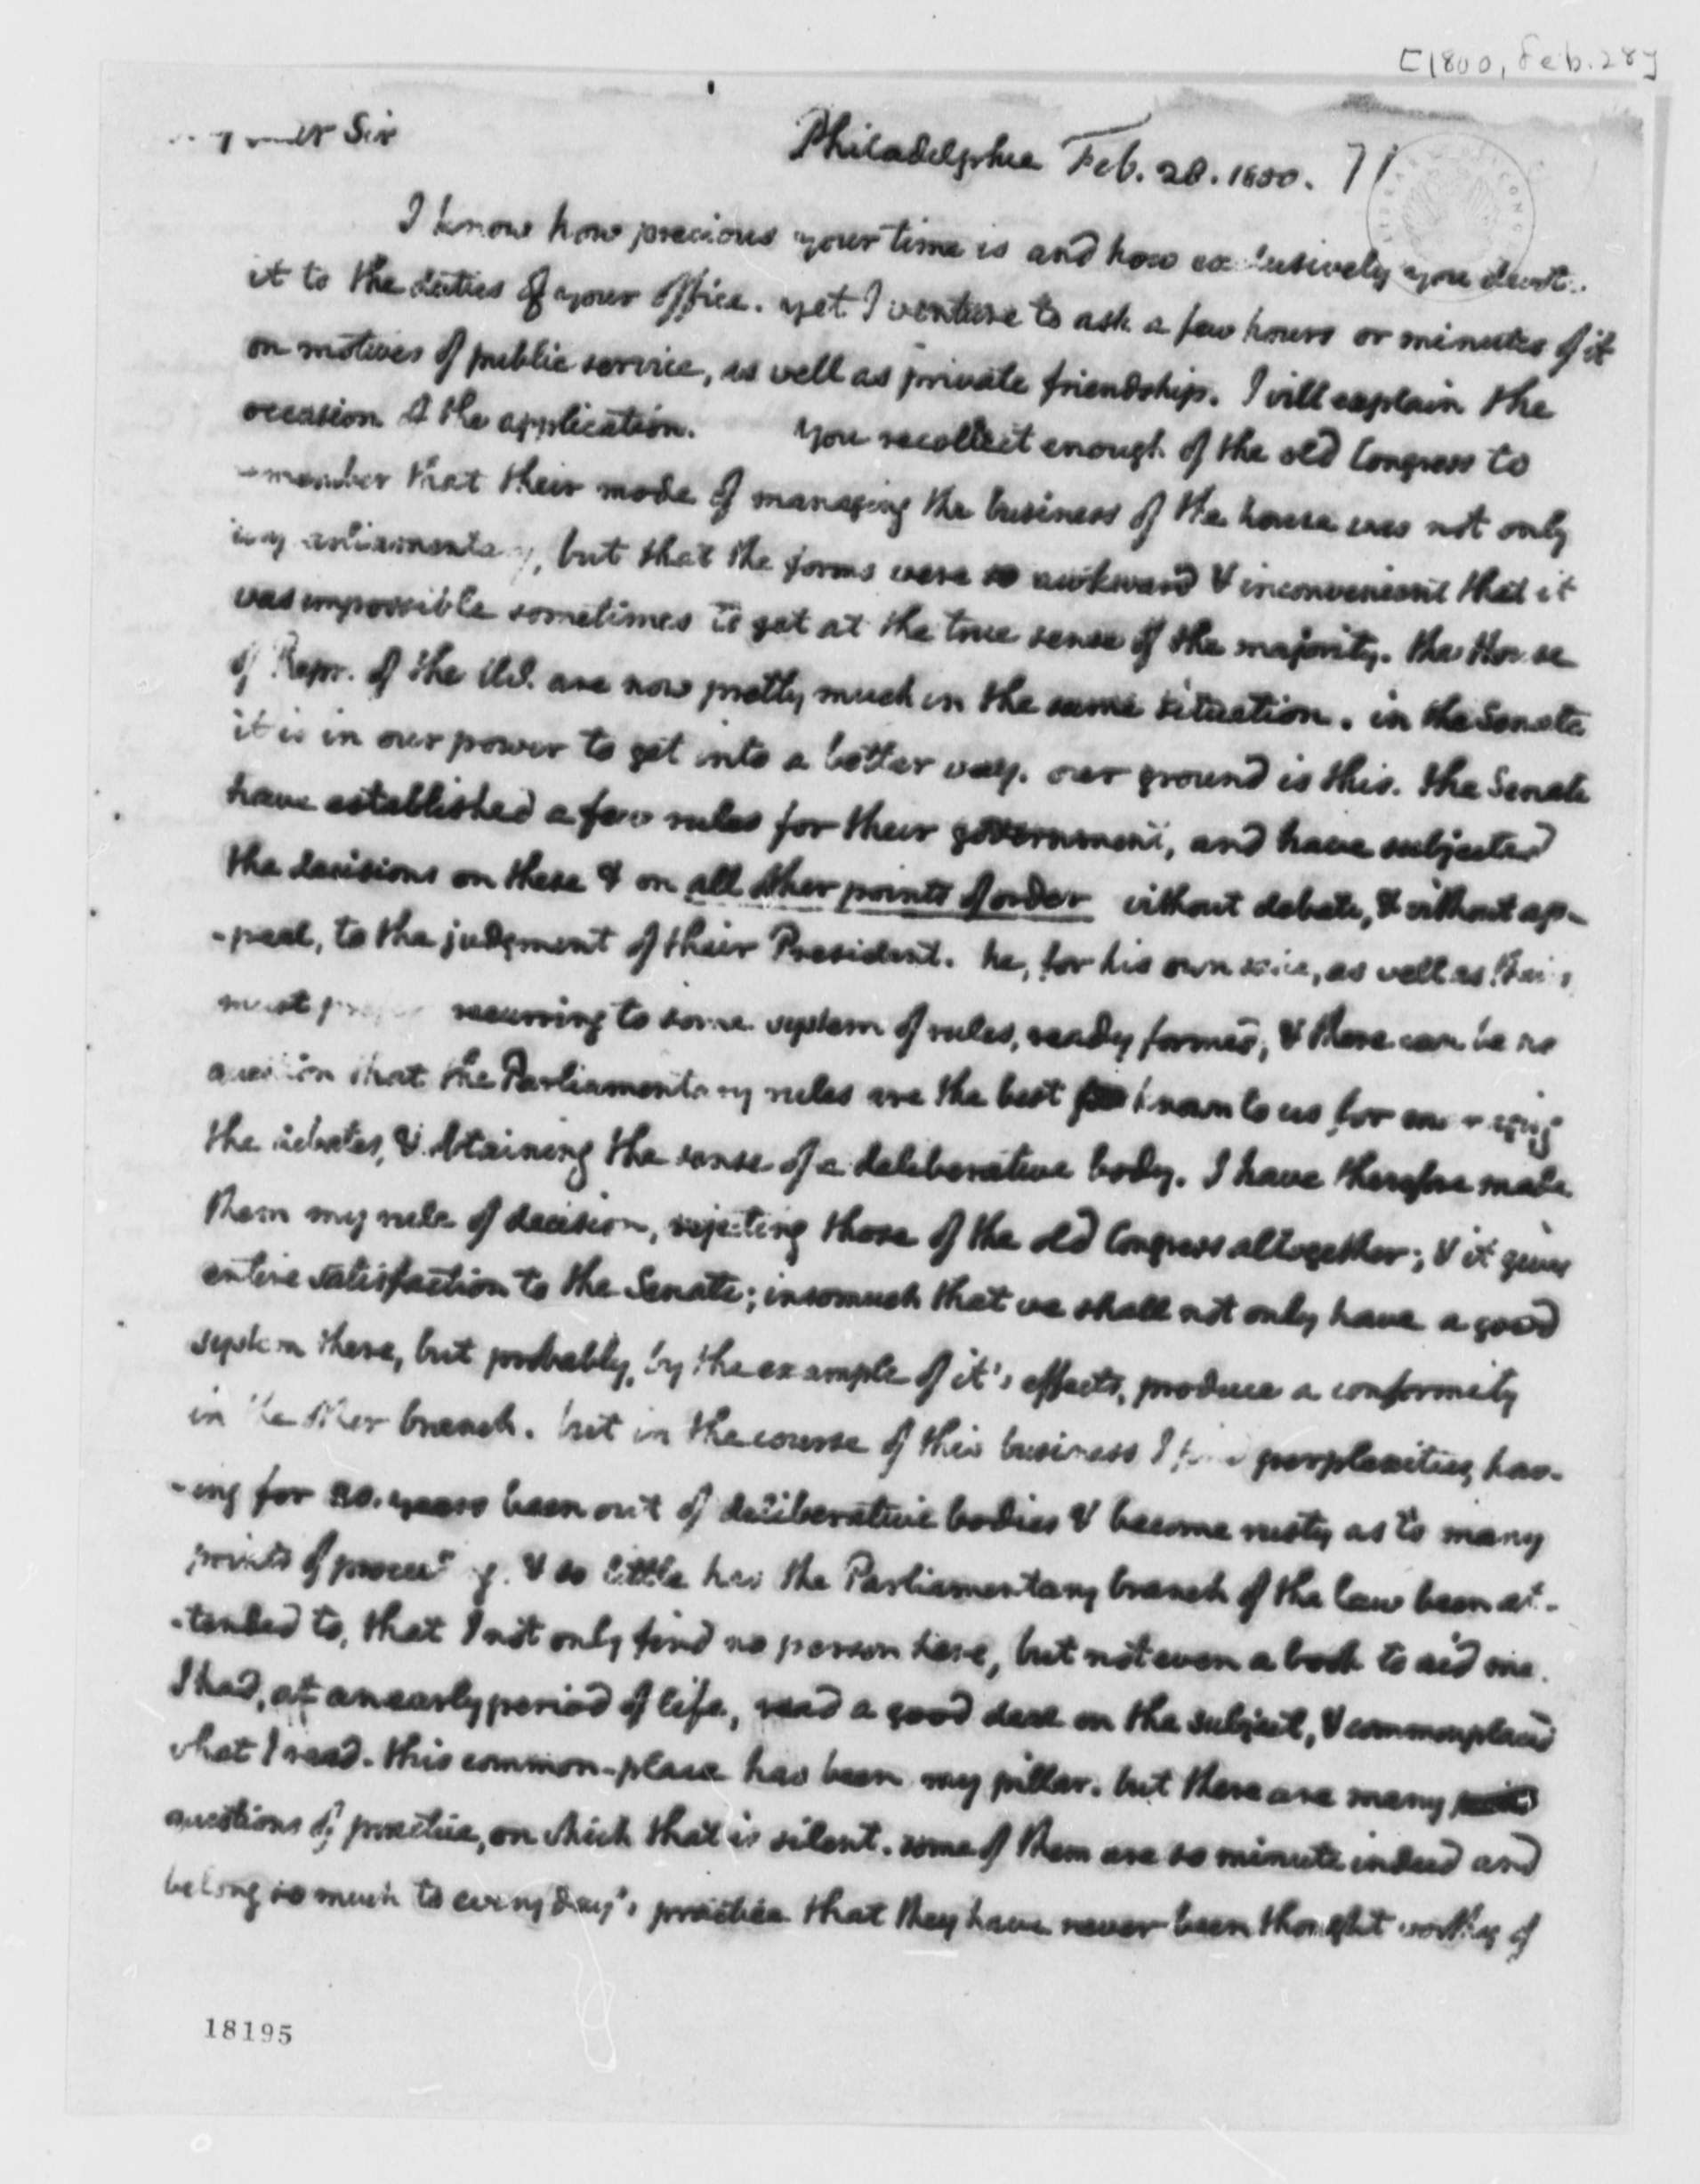 [1800, Feb. 28]
Sir
Philadelphia Feb. 28. 1800. 71
I know how precious your time is and how exclusively you devote
it to the duties of your office. yet I venture to ask a few hours or minutes of it
on motives of public service, as well as private friendship. I will explain the
occasion of the application. You recollect enough of the old Congress to
remember that their mode of managing the business of the house was not only
unparliamentary, but that the forms were so awkward & inconvenient that it
was impossible sometimes to get at the true sense of the majority. the House
of Repr. of the U.S. are now pretty much in the same situation. in the Senate
it is in our power to get into a better way. our ground is this. the Senate
have established a few rules for their government, and have subjected
the decisions on these & on all other points of order without debate, & without ap-
-peal, to the judgment of their President. he, for his own sake, as well as theirs,
must prefer recurring to some system of rules, ready formed, & there can be no
question that the Parliamentary rules are the best known to us for managing
the debates, & obtaining the sense of a deliberative body. I have therefore made
them my rule of decision, rejecting those of the old Congress altogether; & it gives
entire satisfaction to the Senate; insomuch that we shall not only have a good
system there, but probably, by the example of it's effects, produce a conformity
in the other branch. but in the course of this business I find perplexities, hav-
-ing for 20. years been out of deliberative bodies & become rusty as to many
points of proceedg. & so little has the Parliamentary branch of the law been at-
-tended to, that I not only find no person here, but not even a book to aid me.
I had, at an early period of life, read a good deal on the subject, & commonplaced
what I read. this common-place has been my pillar. but there are many
questions of practice, on which that is silent. some of them are so minute indeed and
belong so much to every day's practice that they have never been thought worthy of
18195